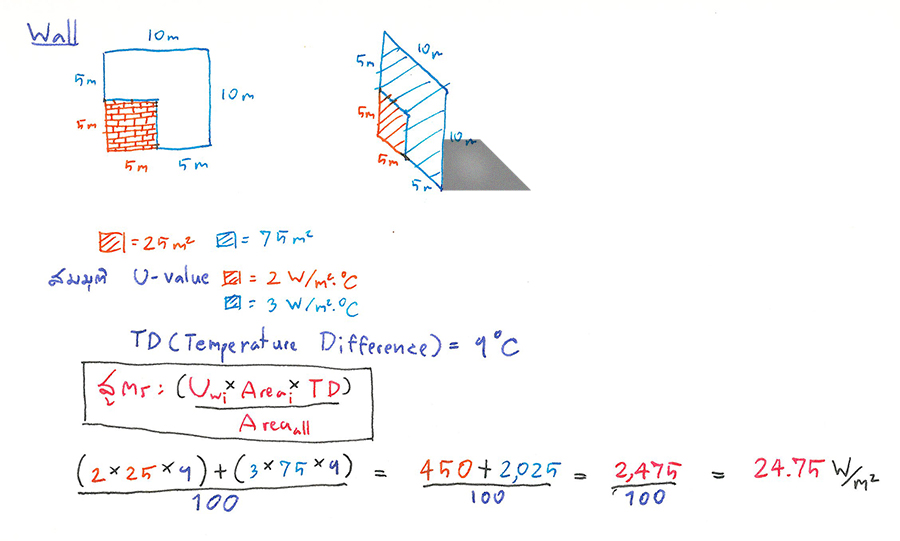 Wall
10m
5m
10m
5m
5m
5m
10m
5m
5m
10m
5m
5m
= 25m² = 75m²
สมมุติ U-value = 2 W/m²·°C
= 3 W/m²·°C
TD (Temperature Difference) = 9°C
สูตร: (Uwi × Areai × TD)
Areaall
(2×25×9)+(3×75×9) = 450+2,025 = 2,475 = 24.75 W/m²
100 100 100